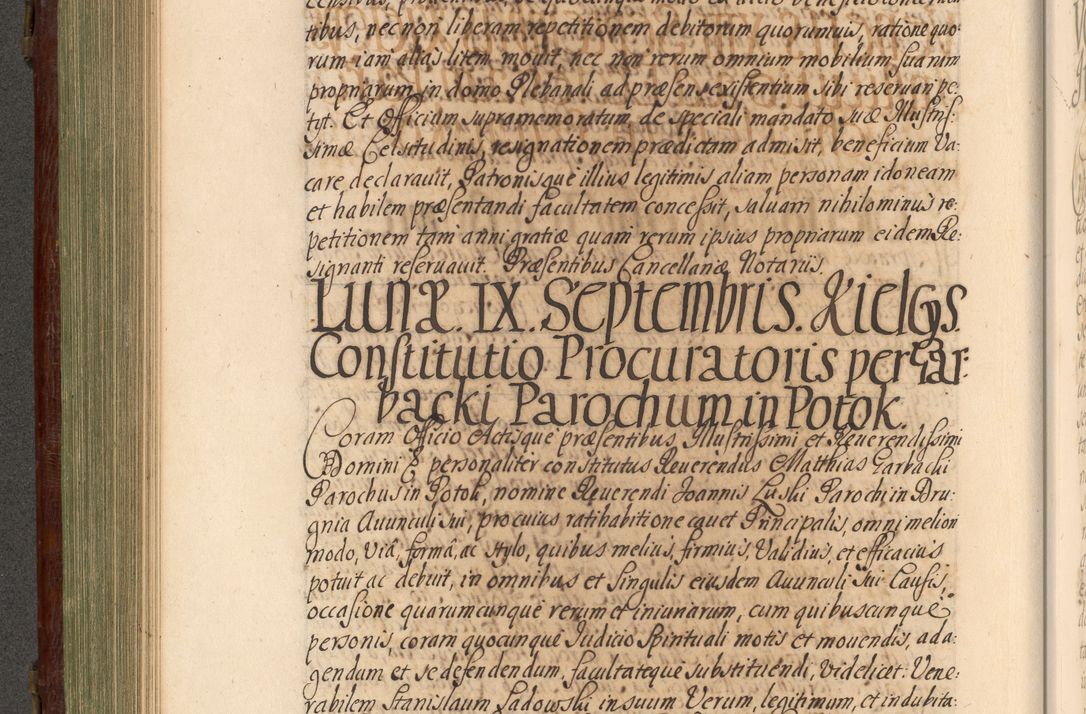 tibus, nec non liberam repetitionem debitorum quorumuis, ratione quo-
rum iam alias litem mouit, nec non rerum omnium mobilium suarum
propriarum, in domo Plebanali ad præsens existentium sibi reseruari pe:
tyt. Et Officium supramemoratum, de speciali mandato suæ Illustris:
simæ Celsitudinis, resignationem prædictam admisit, beneficium Va:
care declarauit, Patronisque illius legitimis aliam personam idoneam
et habilem præsentandi facultatem concessit, saluam nihilominus re:
petitionem tam anni gratiæ quam rerum ipsius propriarum eidem Re:
signanti reseruauit. Præsentibus Cancellariæ Notariis.
Lunæ. IX. Septembris. Kielcys.
Constitutio Procuratoris per Gar:
backi Parochum in Potok.
Coram Officio Actisque præsentibus Illustrissimi et Reuerendissimi
Domini E. personaliter constitutus Reuerendus Matthias Garbacki
Parochus in Potok, nomine Reuerendi Joannis Luski Parochi in Dru:
gnia Auunculi sui, pro cuius ratihabitione cauet Principalis, omni meliori
modo, viâ, formâ, ac stylo, quibus melius, firmius, Validius, et efficacius
potuit ac debuit, in omnibus et singulis eiusdem Auunculi sui Causis,
occasione quarumcunque rerum et iniuriarum, cum quibuscunque
personis, coram quocunque Iudicio Spirituali motis et mouendis, ad a:
gendum et se defendendum, facultateque substituendi, Videlicet: Vene:
rabilem Stanislaum Sadowski in suum Verum, legitimum, et indubita: